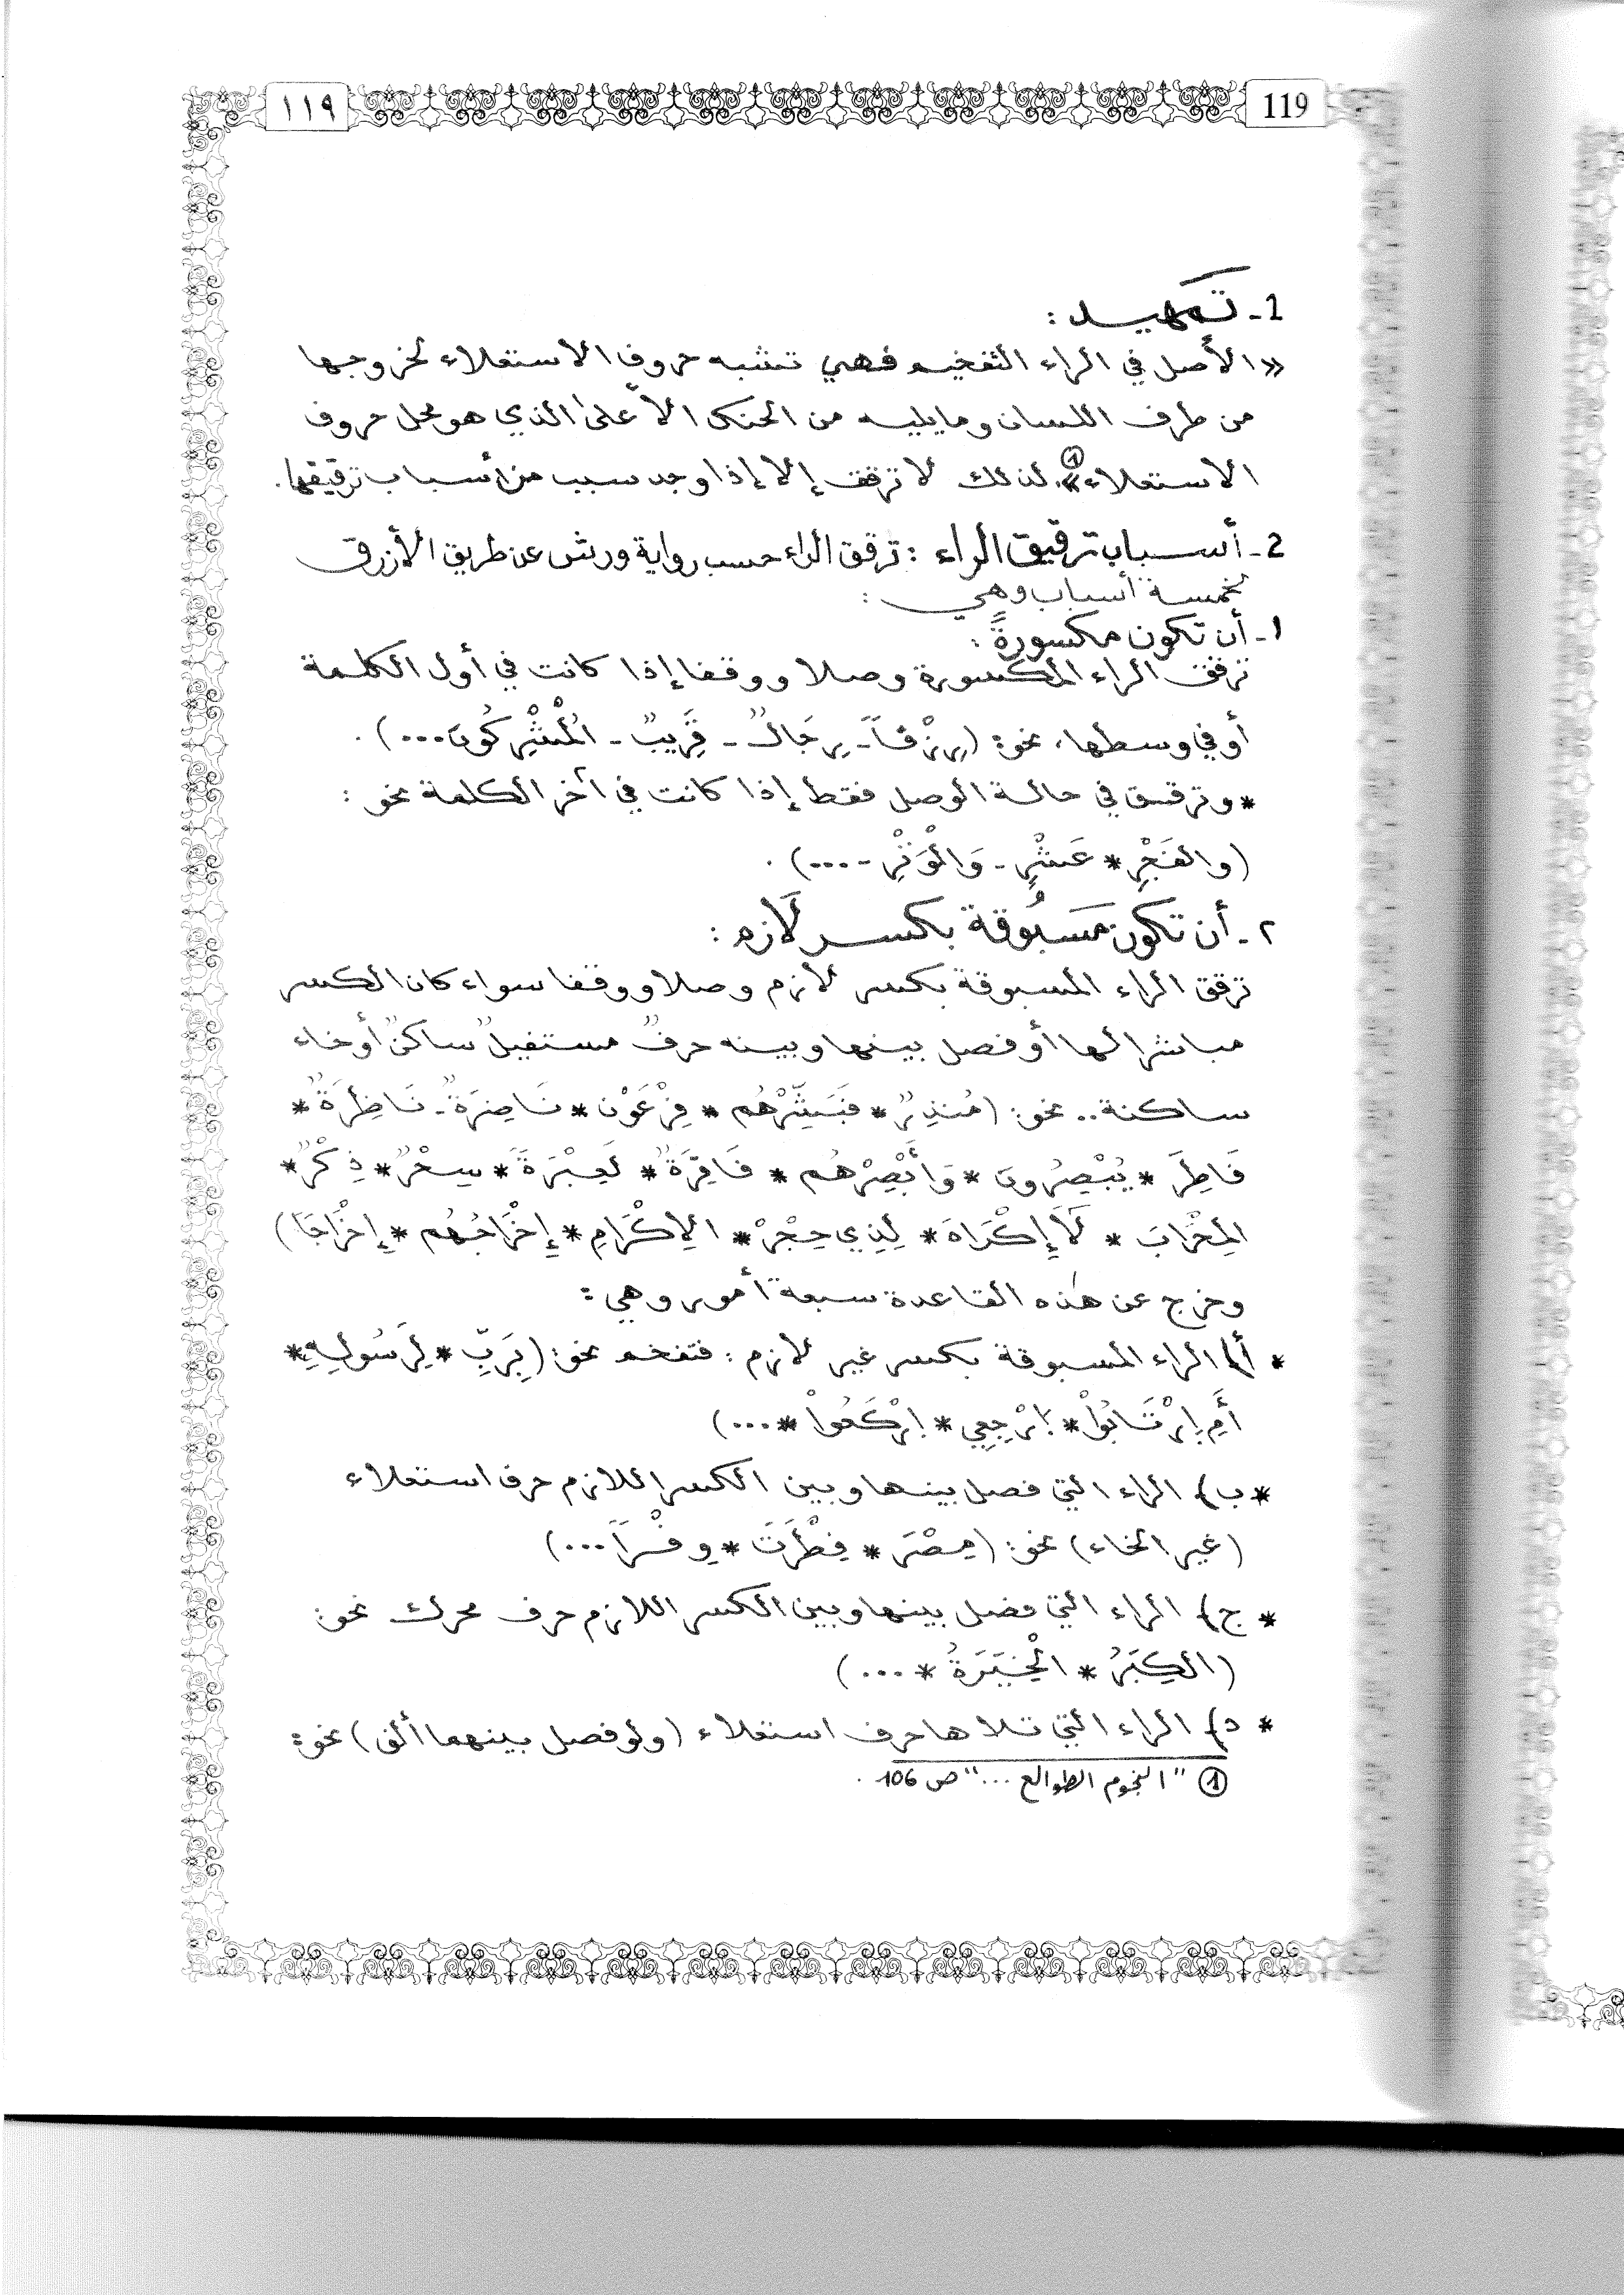 119
١١٩
1- تمهيد:
« الأصل في الراء التفخيم فهي تشبه حروف الاستعلاء لخروجها
من طرف اللسان وما يليه من الحنك الأعلى الذي هو محل حروف
الاستعلاء» ①. لذلك لا ترقق إلا إذا وجد سبب من أسباب ترقيقها.
2- أسباب ترقيق الراء: ترقق الراء حسب رواية ورش عن طريق الأزرق
لخمسة أسباب وهي:
١- أن تكون مكسورةً:
ترقق الراء المكسورة وصلا ووقفا إذا كانت في أول الكلمة
أو في وسطها، نحو: (رِزْقاً - رِجَالٌ - قَرِيبٌ - الْمُشْرِكُونَ...).
* وترقق في حالة الوصل فقط إذا كانت في آخر الكلمة نحو:
(والفَجْرِ * عَشْرٍ - وَالْوَتْرِ - ...).
٢- أن تكون مَسبُوقة بكسر لَازم:
ترقق الراء المسبوقة بكسر لازم وصلا ووقفا سواء كان الكسر
مباشرا لها أو فصل بينها وبينه حرفٌ مستفيلٌ ساكنٌ أو خاء
ساكنة.. نحو: (مُنذِرٌ * فَبَشِّرْهُم * فِرْعَوْن * نَاضِرَةٌ - نَاظِرَةٌ *
فَاطِرَ * يُبْصِرُونَ * وَأَبْصِرْهُم * فَاقِرَةٌ * لَعِبْرَةً * سِحْرٌ * ذِكْرٌ *
الْمِحْرَابَ * لَا إِكْرَاهَ * لِذِي حِجْرٍ * الاِكْرَامِ * إِخْرَاجُهُم * إِخْرَاجَا)
وخرج عن هذه القاعدة سبعة أمور وهي:
* أ) الراء المسبوقة بكسر غير لازم: فتفخم نحو: (بِرَبِّ * لِرَسُولِهِ *
أَمِ اِرْتَابُواْ * اَرْجِعِي * اِرْكَعُواْ * ...)
* ب) الراء التي فصل بينها وبين الكسر اللازم حرف استعلاء
(غير الخاء) نحو: (مِصْرَ * فِطْرَتَ * وِقْراً ...)
* ج) الراء التي فصل بينها وبين الكسر اللازم حرف محرك نحو:
(الكِبَرُ * الْخِيَرَةُ * ...)
* د) الراء التي تلاها حرف استعلاء (ولو فصل بينهما ألف) نحو:
① "النجوم الطوالع ..." ص 106.